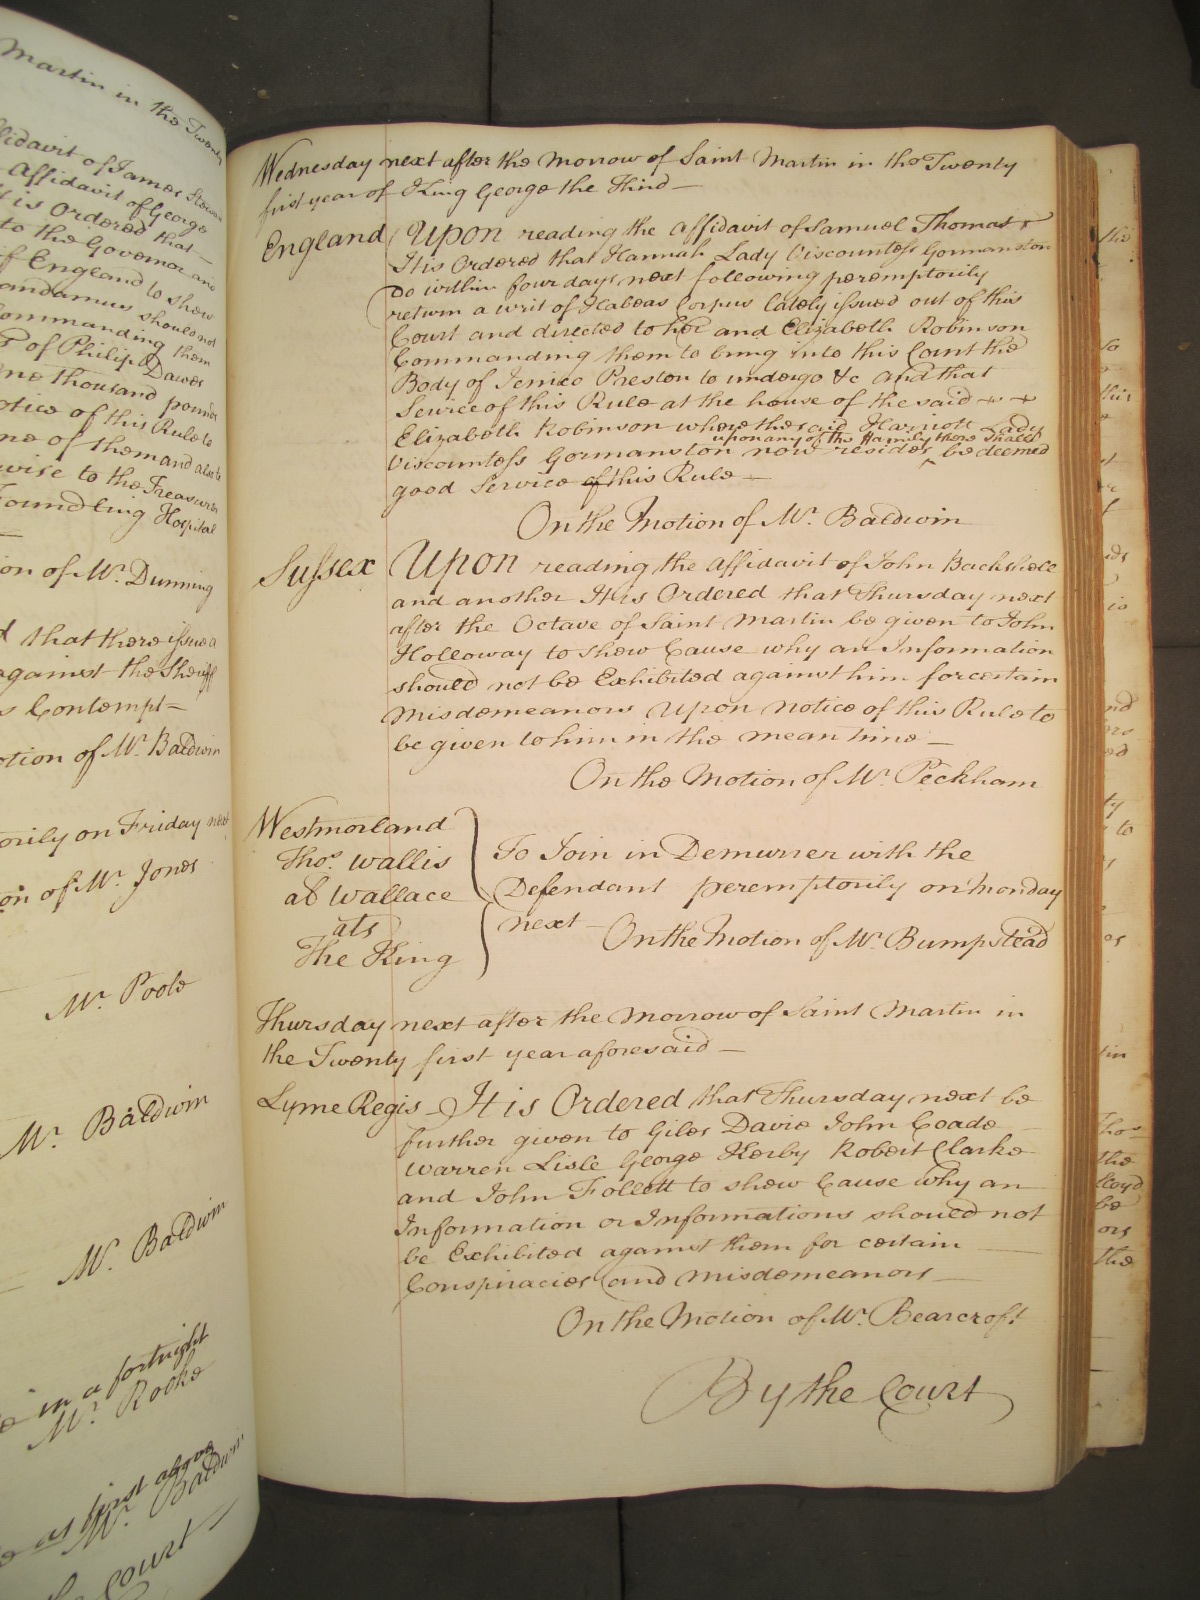 Martin in the Twenty
Affidavit of James
Affidavit of George
is Ordered that
to the Governor and
of England to shew
andamus should not
ommanding them
of Philip Dawes
ne thousand pounds
otice of this Rule to
ne of them and also to
wise to the Treasurer
Foundling Hospital
on of Mr. Dunning
that there issue a
against the Sheriff
s Contempt
otion of Mr. Baldwin
orily on Friday next
on of Mr. Jones
Mr. Poole
Mr. Baldwin
Mr. Baldwin
in a fortnight
Mr. Rooke
as first above
Mr. Baldwin
Court
Wednesday next after the Morrow of Saint Martin in the Twenty
first year of King George the Third
England Upon reading the Affidavit of Samuel Thomas
It is Ordered that Hannah Lady Viscountess Gormanston
Do within four days next following peremptorily
return a writ of Habeas Corpus lately issued out of this
Court and directed to her and Elizabeth Robinson
Commanding them to bring into this Court the
Body of Jenico Preston to undergo &c And that
Service of this Rule at the house of the said
Elizabeth Robinson where the said Harriott Lady
upon any of the Family there shall
Viscountess Gormanston now resides ^ be deemed
good Service of this Rule
On the Motion of Mr. Baldwin
Sussex Upon reading the Affidavit of John Backshell
and another It is Ordered that Thursday next
after the Octave of Saint Martin be given to John
Holloway to shew Cause why an Information
should not be Exhibited against him for certain
Misdemeanors Upon notice of this Rule to
be given to him in the mean time
On the Motion of Mr. Peckham
Westmorland
Thos. Wallis
als Wallace
ats
The King
To Join in Demurrer with the
Defendant peremptorily on Monday
next
On the Motion of Mr. Bumpstead
Thursday next after the Morrow of Saint Martin in
the Twenty first year aforesaid
Lyme Regis It is Ordered that Thursday next be
further given to Giles Davie John Coade
Warren Lisle George Kerby Robert Clarke
and John Follett to shew Cause why an
Information or Informations should not
be Exhibited against them for certain
Conspiracies and Misdemeanors
On the Motion of Mr. Bearcroft
By the Court